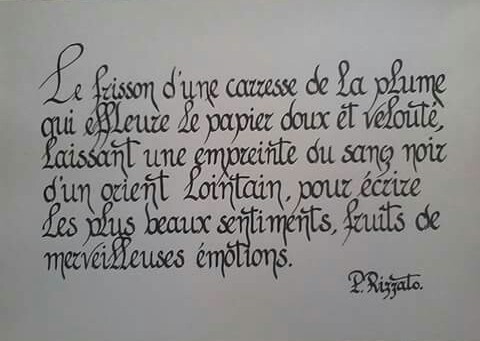 Le frisson d'une carresse de la plume
qui effleure le papier doux et velouté,
laissant une empreinte du sang noir
d'un orient lointain, pour écrire
les plus beaux sentiments, fruits de
merveilleuses émotions.
P. Rizzato.